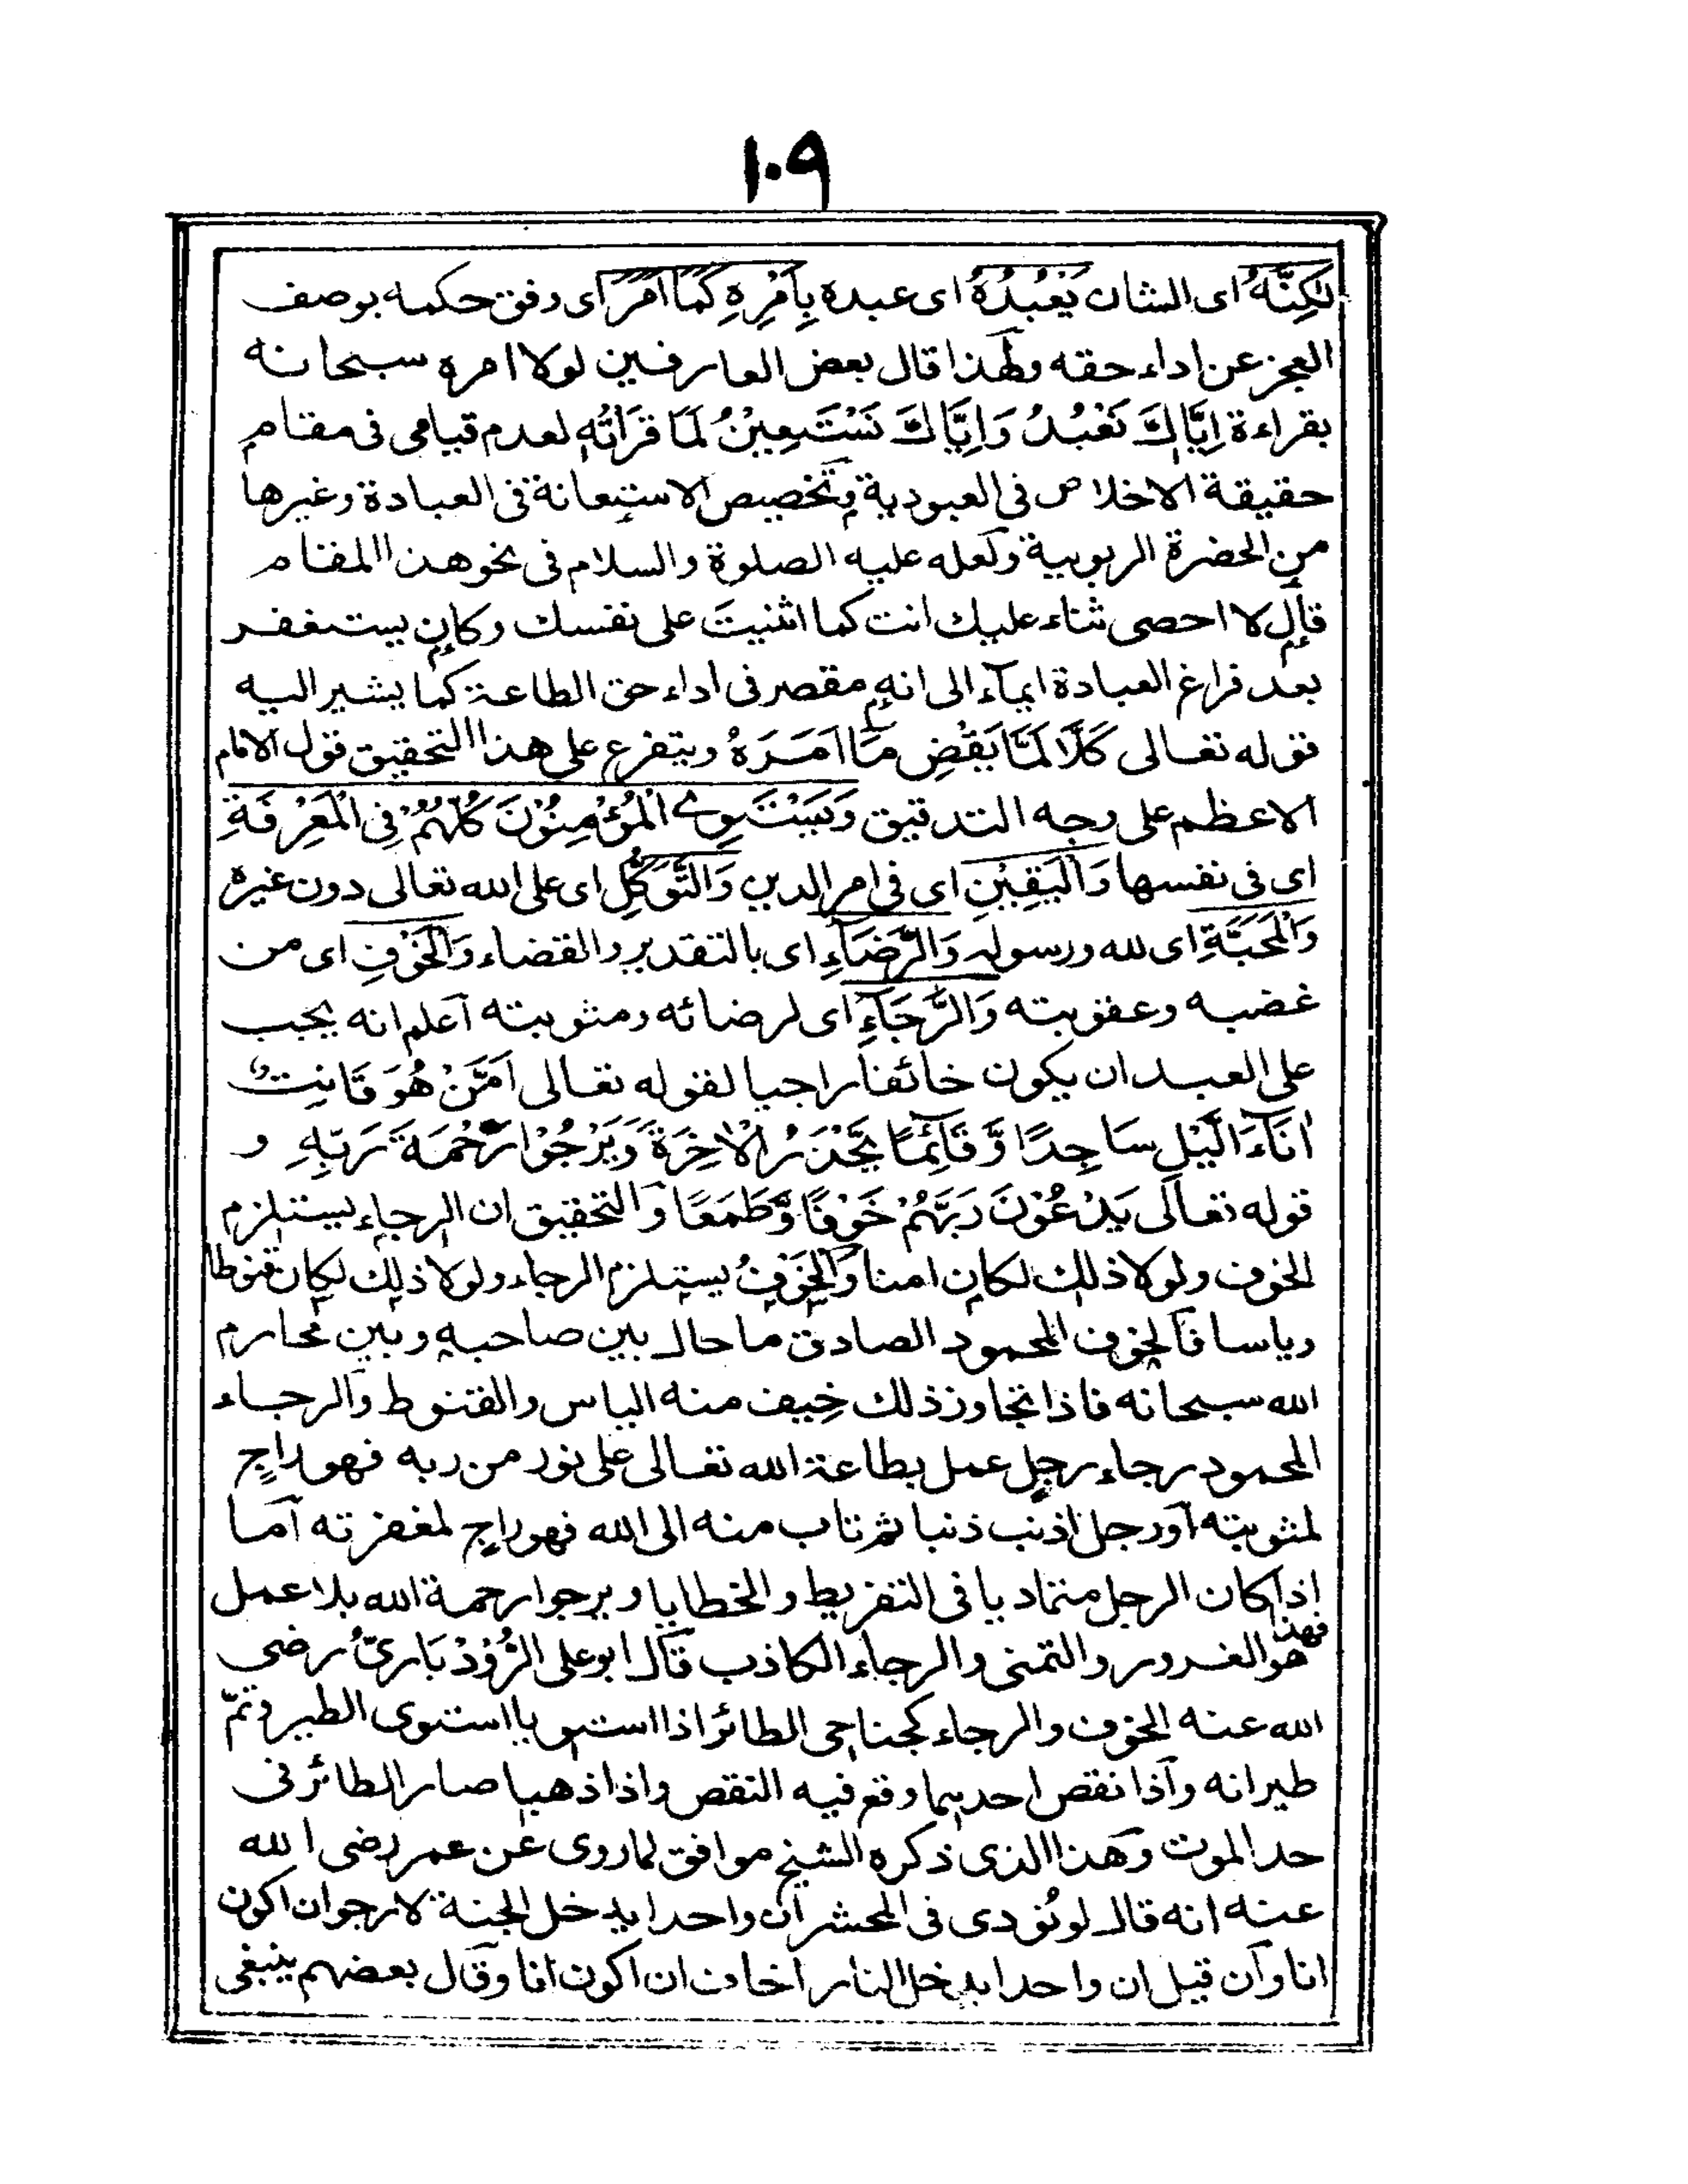 ١٠٩
لٰكِنَّهُ اى الشان يَعْبُدُهُ اى عبده بِاَمْرِهِ كَمَا اَمَرَ اى وفق حكمه بوصف
العجز عن اداء حقه ولهذا قال بعض العارفين لولا امره سبحانه
بقراءة اِيَّاكَ نَعْبُدُ وَاِيَّاكَ نَسْتَعِيْنُ لَمَا قَرَأتُه لعدم قيامى فى مقام
حقيقة الاخلاص فى العبودية وتخصيص الاستعانة فى العبادة وغيرها
من الحضرة الربوبية ولعله عليه الصلوة والسلام فى نحو هذا المقام
قال لا احصى ثناء عليك انت كما اثنيتَ على نفسك وكان يستغفر
بعد فراغ العبادة ايمآء الى انه مقصر فى اداء حق الطاعة كما يشير اليه
قوله تعالى كَلَّا لَمَّا يَقْضِ مَآ اَمَرَهُ ويتفرع على هذا التحقيق قول الامام
الاعظم على وجه التدقيق وَيَسْتَوِے الْمُؤْمِنُوْنَ كُلُّهُمْ فِى الْمَعْرِفَةِ
اى فى نفسها وَالْيَقِيْنِ اى فى امر الدين وَالتَّوَكُّلِ اى على الله تعالى دون غيره
وَالْمَحَبَّةِ اى لله ورسوله وَالرِّضَآءِ اى بالتقدير والقضاء وَالْخَوْفِ اى من
غضبه وعقوبته وَالرَّجَآءِ اى لرضائه ومثوبته اعلم انه يجب
على العبد ان يكون خائفا راجيا لقوله تعالى اَمَّنْ هُوَ قَانِتٌ
اٰنَآءَ الَّيْلِ سَاجِدًا وَّقَآئِمًا يَّحْذَرُ الْاٰخِرَةَ وَيَرْجُوْا رَحْمَةَ رَبِّهٖ و
قوله تعالى يَدْعُوْنَ رَبَّهُمْ خَوْفًا وَّطَمَعًا والتحقيق ان الرجاء يستلزم
الخوف ولولا ذلك لكان امنا والخوفُ يستلزم الرجاء ولولا ذلك لكان قنوطا
وياسا فالخوف المحمود الصادق ما حال بين صاحبه وبين محارم
الله سبحانه فاذا تجاوز ذلك خِيف منه الياس والقنوط والرجاء
المحمود رجاء رجل عمل بطاعة الله تعالى على نور من ربه فهو راجٍ
لمثوبته او رجل اذنب ذنبا ثم تاب منه الى الله فهو راجٍ لمغفرته اما
اذا كان الرجل متماديا فى التفريط والخطايا ويرجوا رحمة الله بلا عمل
فهذا هو الغرور والتمنى والرجاء الكاذب قال ابو على الرُّوْذْبَارِىُّ رضى
الله عنه الخوف والرجاء كجناحى الطائر اذا استويا استوى الطير وتمّ
طيرانه واذا نقص احدهما وقع فيه النقص واذا ذهبا صار الطائر فى
حد الموت وهذا الذى ذكره الشيخ موافق لما روى عن عمر رضى الله
عنه انه قال لو نُودى فى المحشر ان واحدا يدخل الجنة لارجوا ان اكون
انا وان قيل ان واحدا يدخل النار اخاف ان اكون انا وقال بعضهم ينبغى